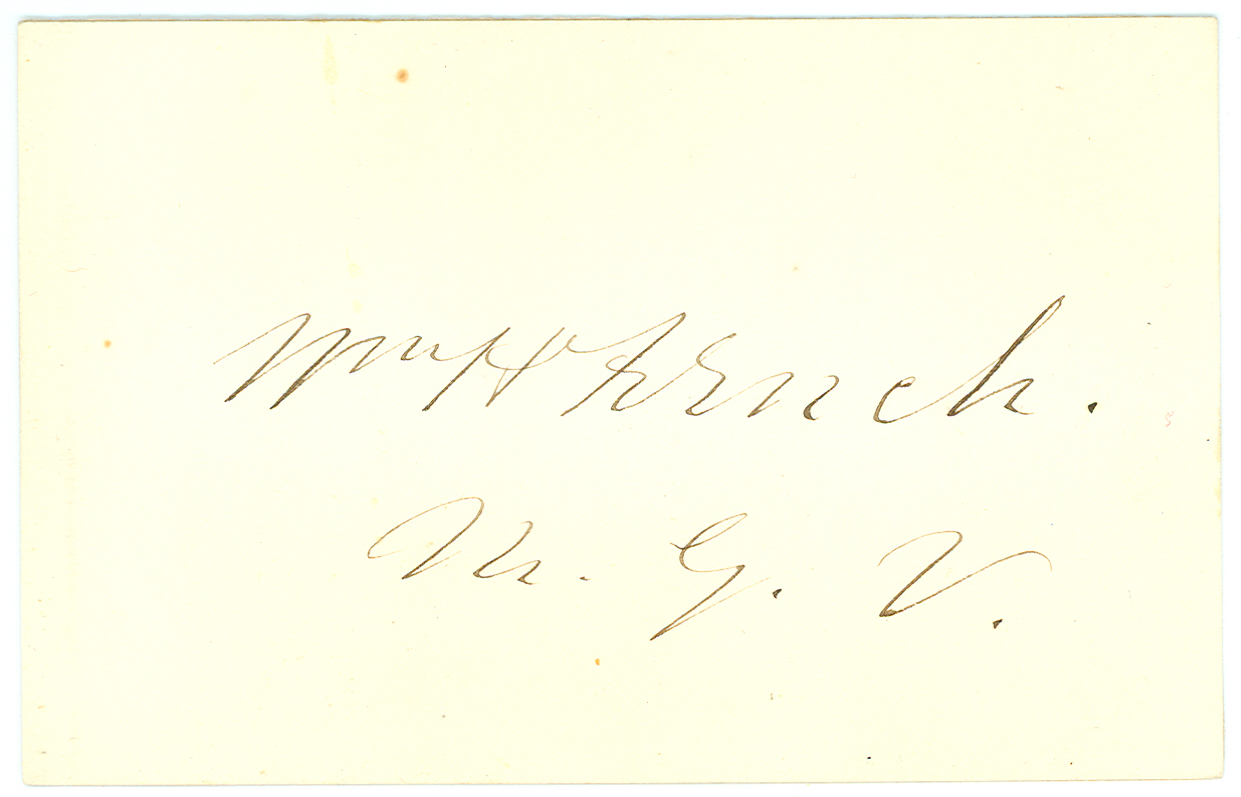 Wm H French.
M. G. V.